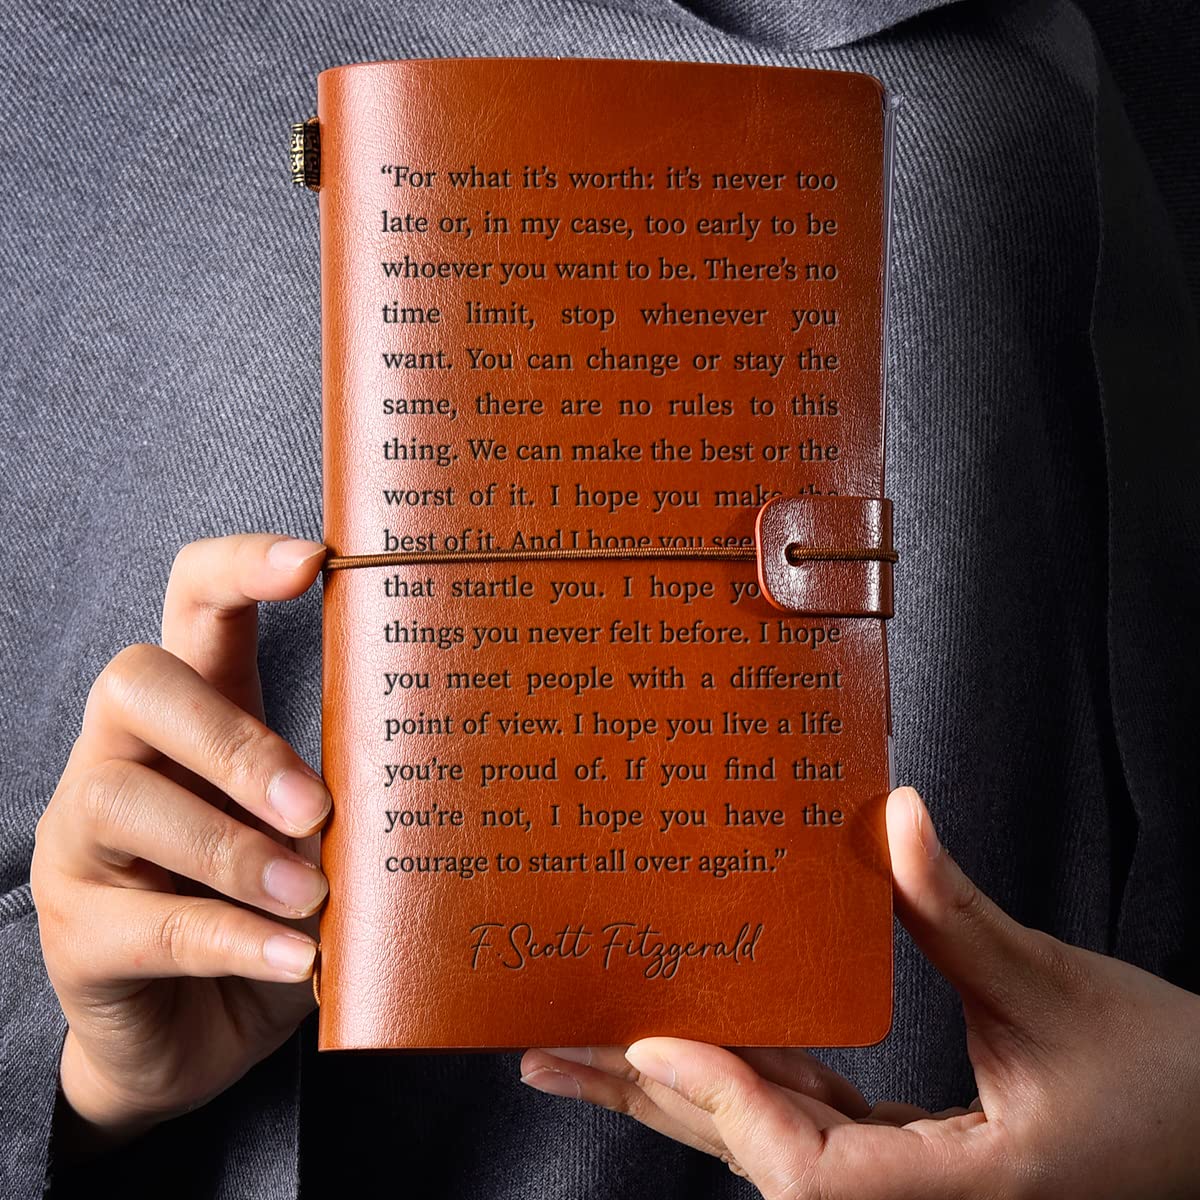 “For what it’s worth: it’s never too
late or, in my case, too early to be
whoever you want to be. There’s no
time limit, stop whenever you
want. You can change or stay the
same, there are no rules to this
thing. We can make the best or the
worst of it. I hope you make the
best of it. And I hope you see
that startle you. I hope
things you never felt before. I hope
you meet people with a different
point of view. I hope you live a life
you’re proud of. If you find that
you’re not, I hope you have the
courage to start all over again.”
F. Scott Fitzgerald